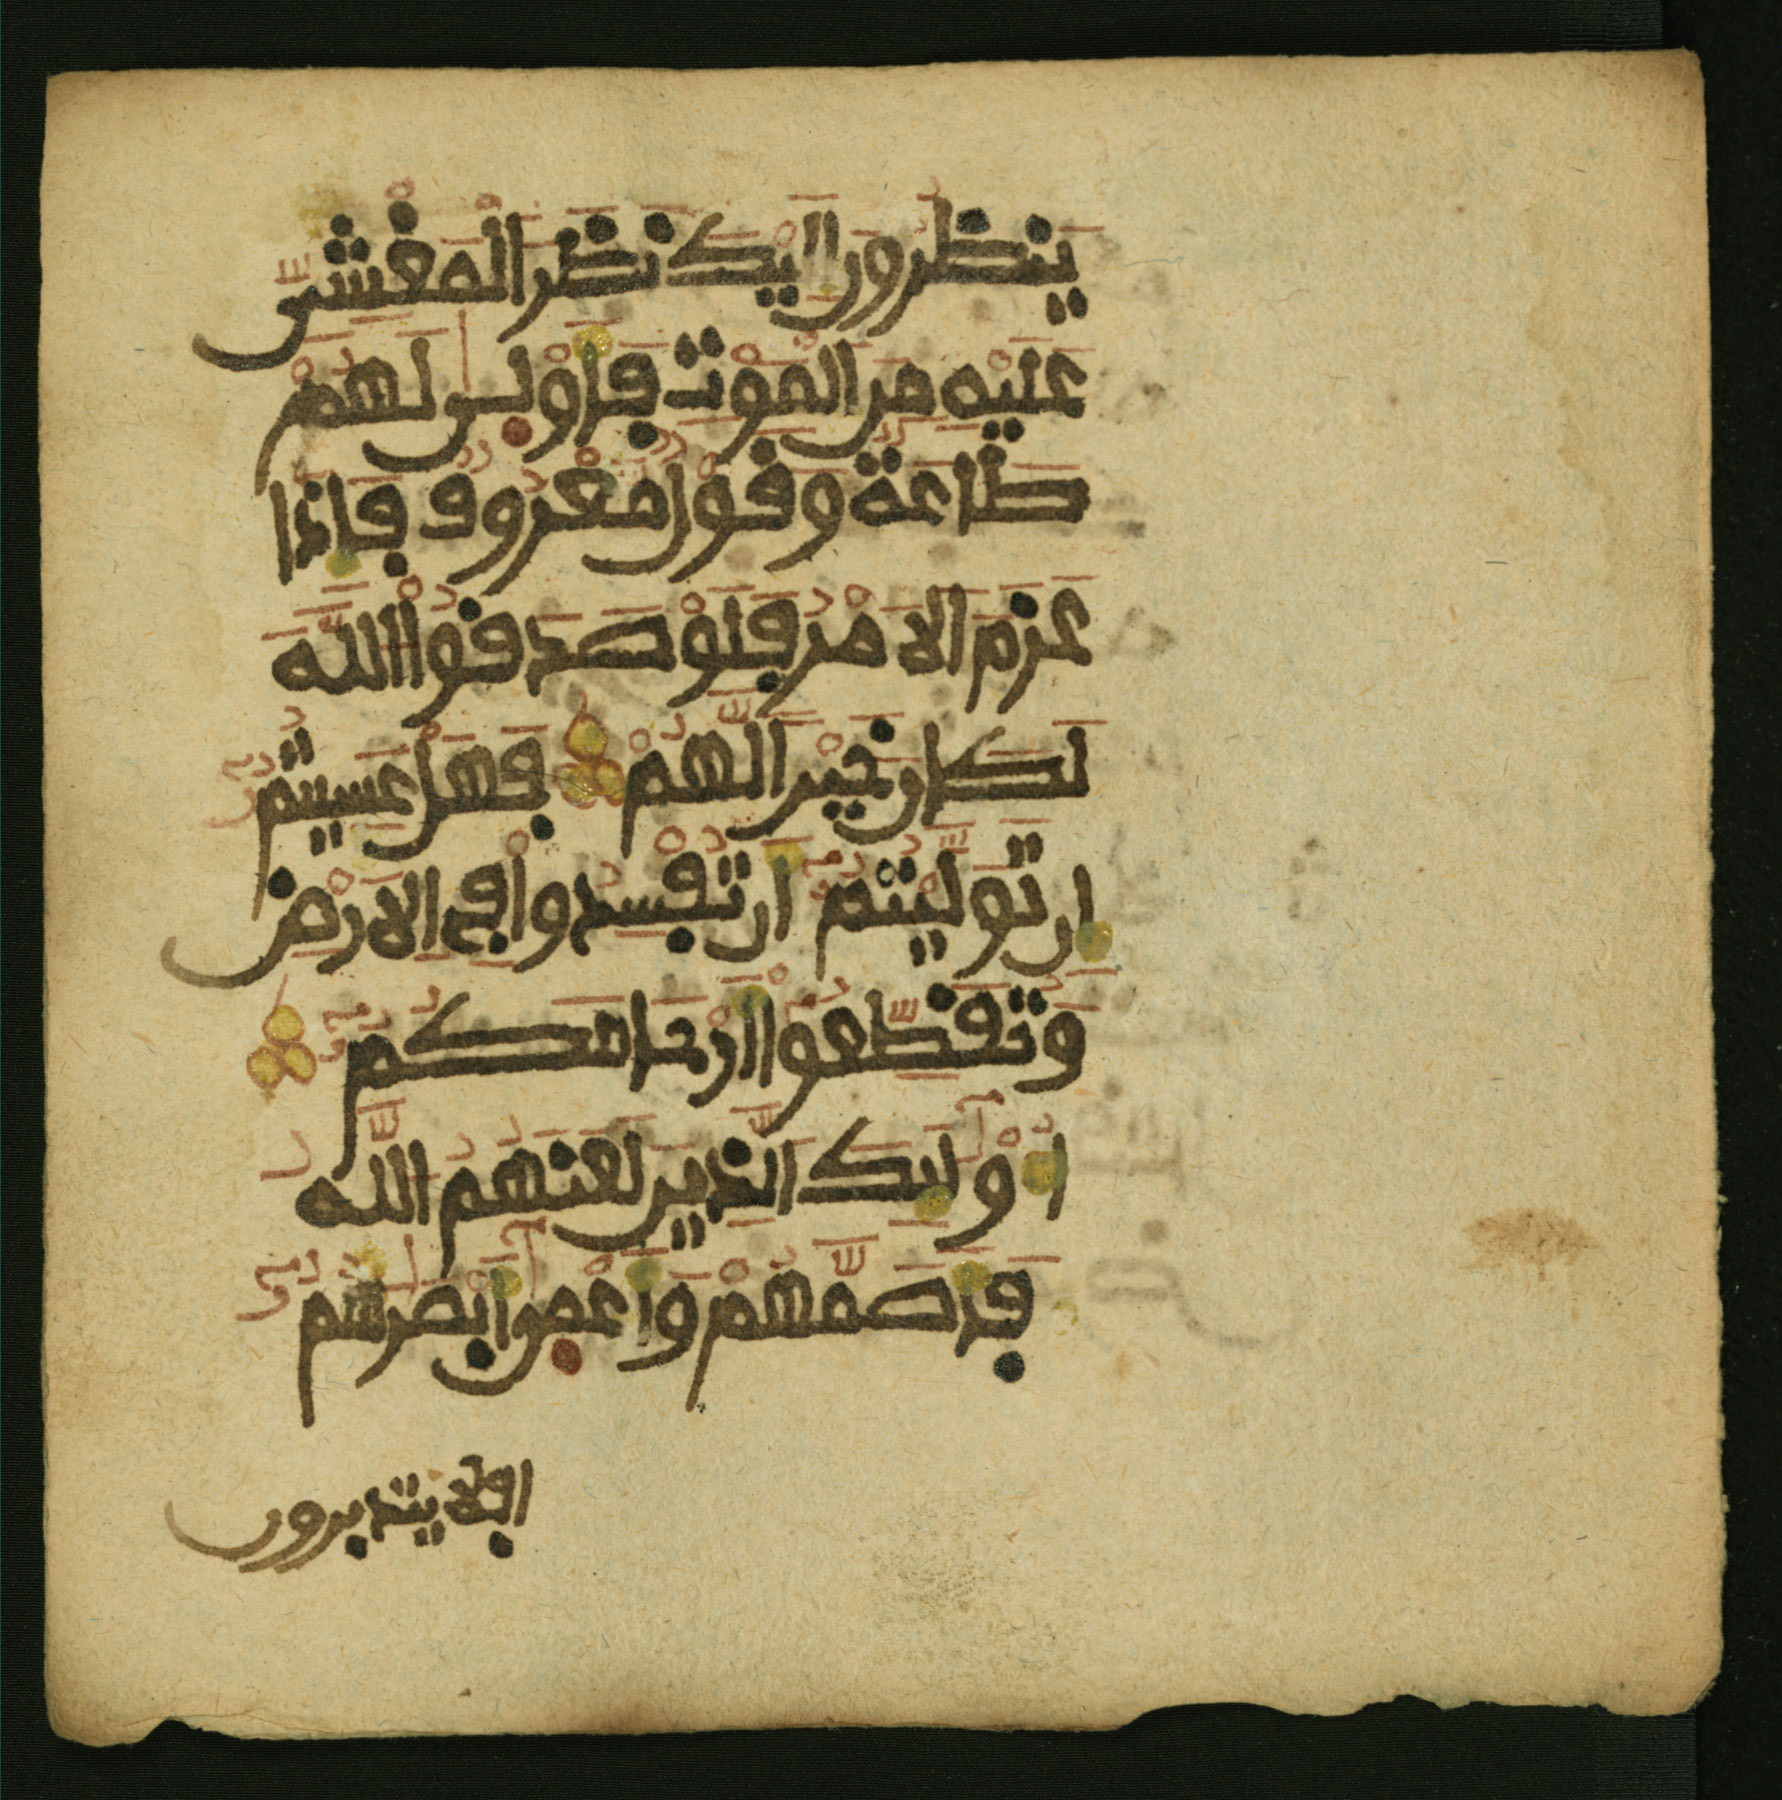 يَنظُرُونَ إِلَيْكَ نَظَرَ الْمَغْشِيِّ
عَلَيْهِ مِنَ الْمَوْتِ فَأَوْلىٰ لَهُمْ
طَاعَةٌ وَقَوْلٌ مَّعْرُوفٌ فَإِذَا
عَزَمَ الَامْرُ فَلَوْ صَدَقُواْ اللَّهَ
لَكَانَ خَيْراً لَّهُمْ فَهَلْ عَسِيتُمُ
إِن تَوَلَّيْتُمُ أَن تُفْسِدُواْ فِي الَارْضِ
وَتُقَطِّعُواْ أَرْحَامَكُمُ
أُوْلَٰٓئِكَ الَّذِينَ لَعَنَهُمُ اللَّهُ
فَأَصَمَّهُمْ وَأَعْمىٰٓ أَبْصَٰرَهُمُ
افلا يتدبرون